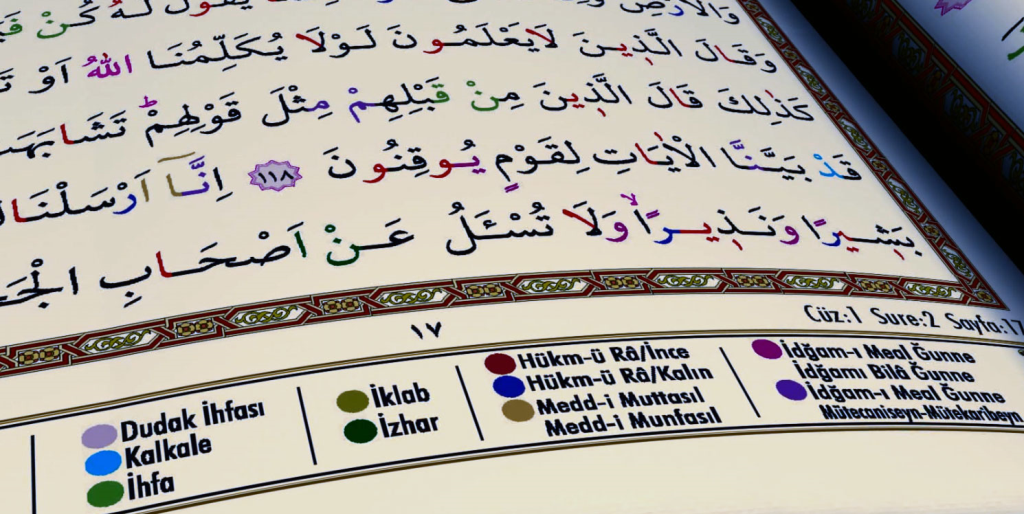 يَقُولُ لَهُ كُنْ
وَقَالَ الَّذ۪ينَ لَايَعْلَمُونَ لَوْلَا يُكَلِّمُنَا اللّٰهُ اَوْ
كَذٰلِكَ قَالَ الَّذ۪ينَ مِنْ قَبْلِهِمْ مِثْلَ قَوْلِهِمْ
قَدْ بَيَّنَّا الْاٰيَاتِ لِقَوْمٍ يُوقِنُونَ ١١٨ اِنَّٓا اَرْسَلْنَا
بَش۪يرًا وَنَذ۪يرًاۙ وَلَا تُسْـَٔلُ عَنْ اَصْحَابِ
١٧
Cüz:1 Sure:2 Sayfa:17
Dudak İhfası
Kalkale
İhfa
İklab
İzhar
Hükm-ü Râ/İnce
Hükm-ü Râ/Kalın
Medd-i Muttasıl
Medd-i Munfasıl
İdğam-ı Meal Ğunne
İdğamı Bilâ Ğunne
İdğam-ı Meal Ğunne
Mütecaniseyn-Mütekaribeyn